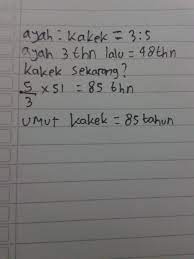 ayah : kakek = 3:5
ayah 3 thn lalu = 48thn
kakek sekarang?
5/3 x 51 = 85 thn
umur kakek = 85 tahun